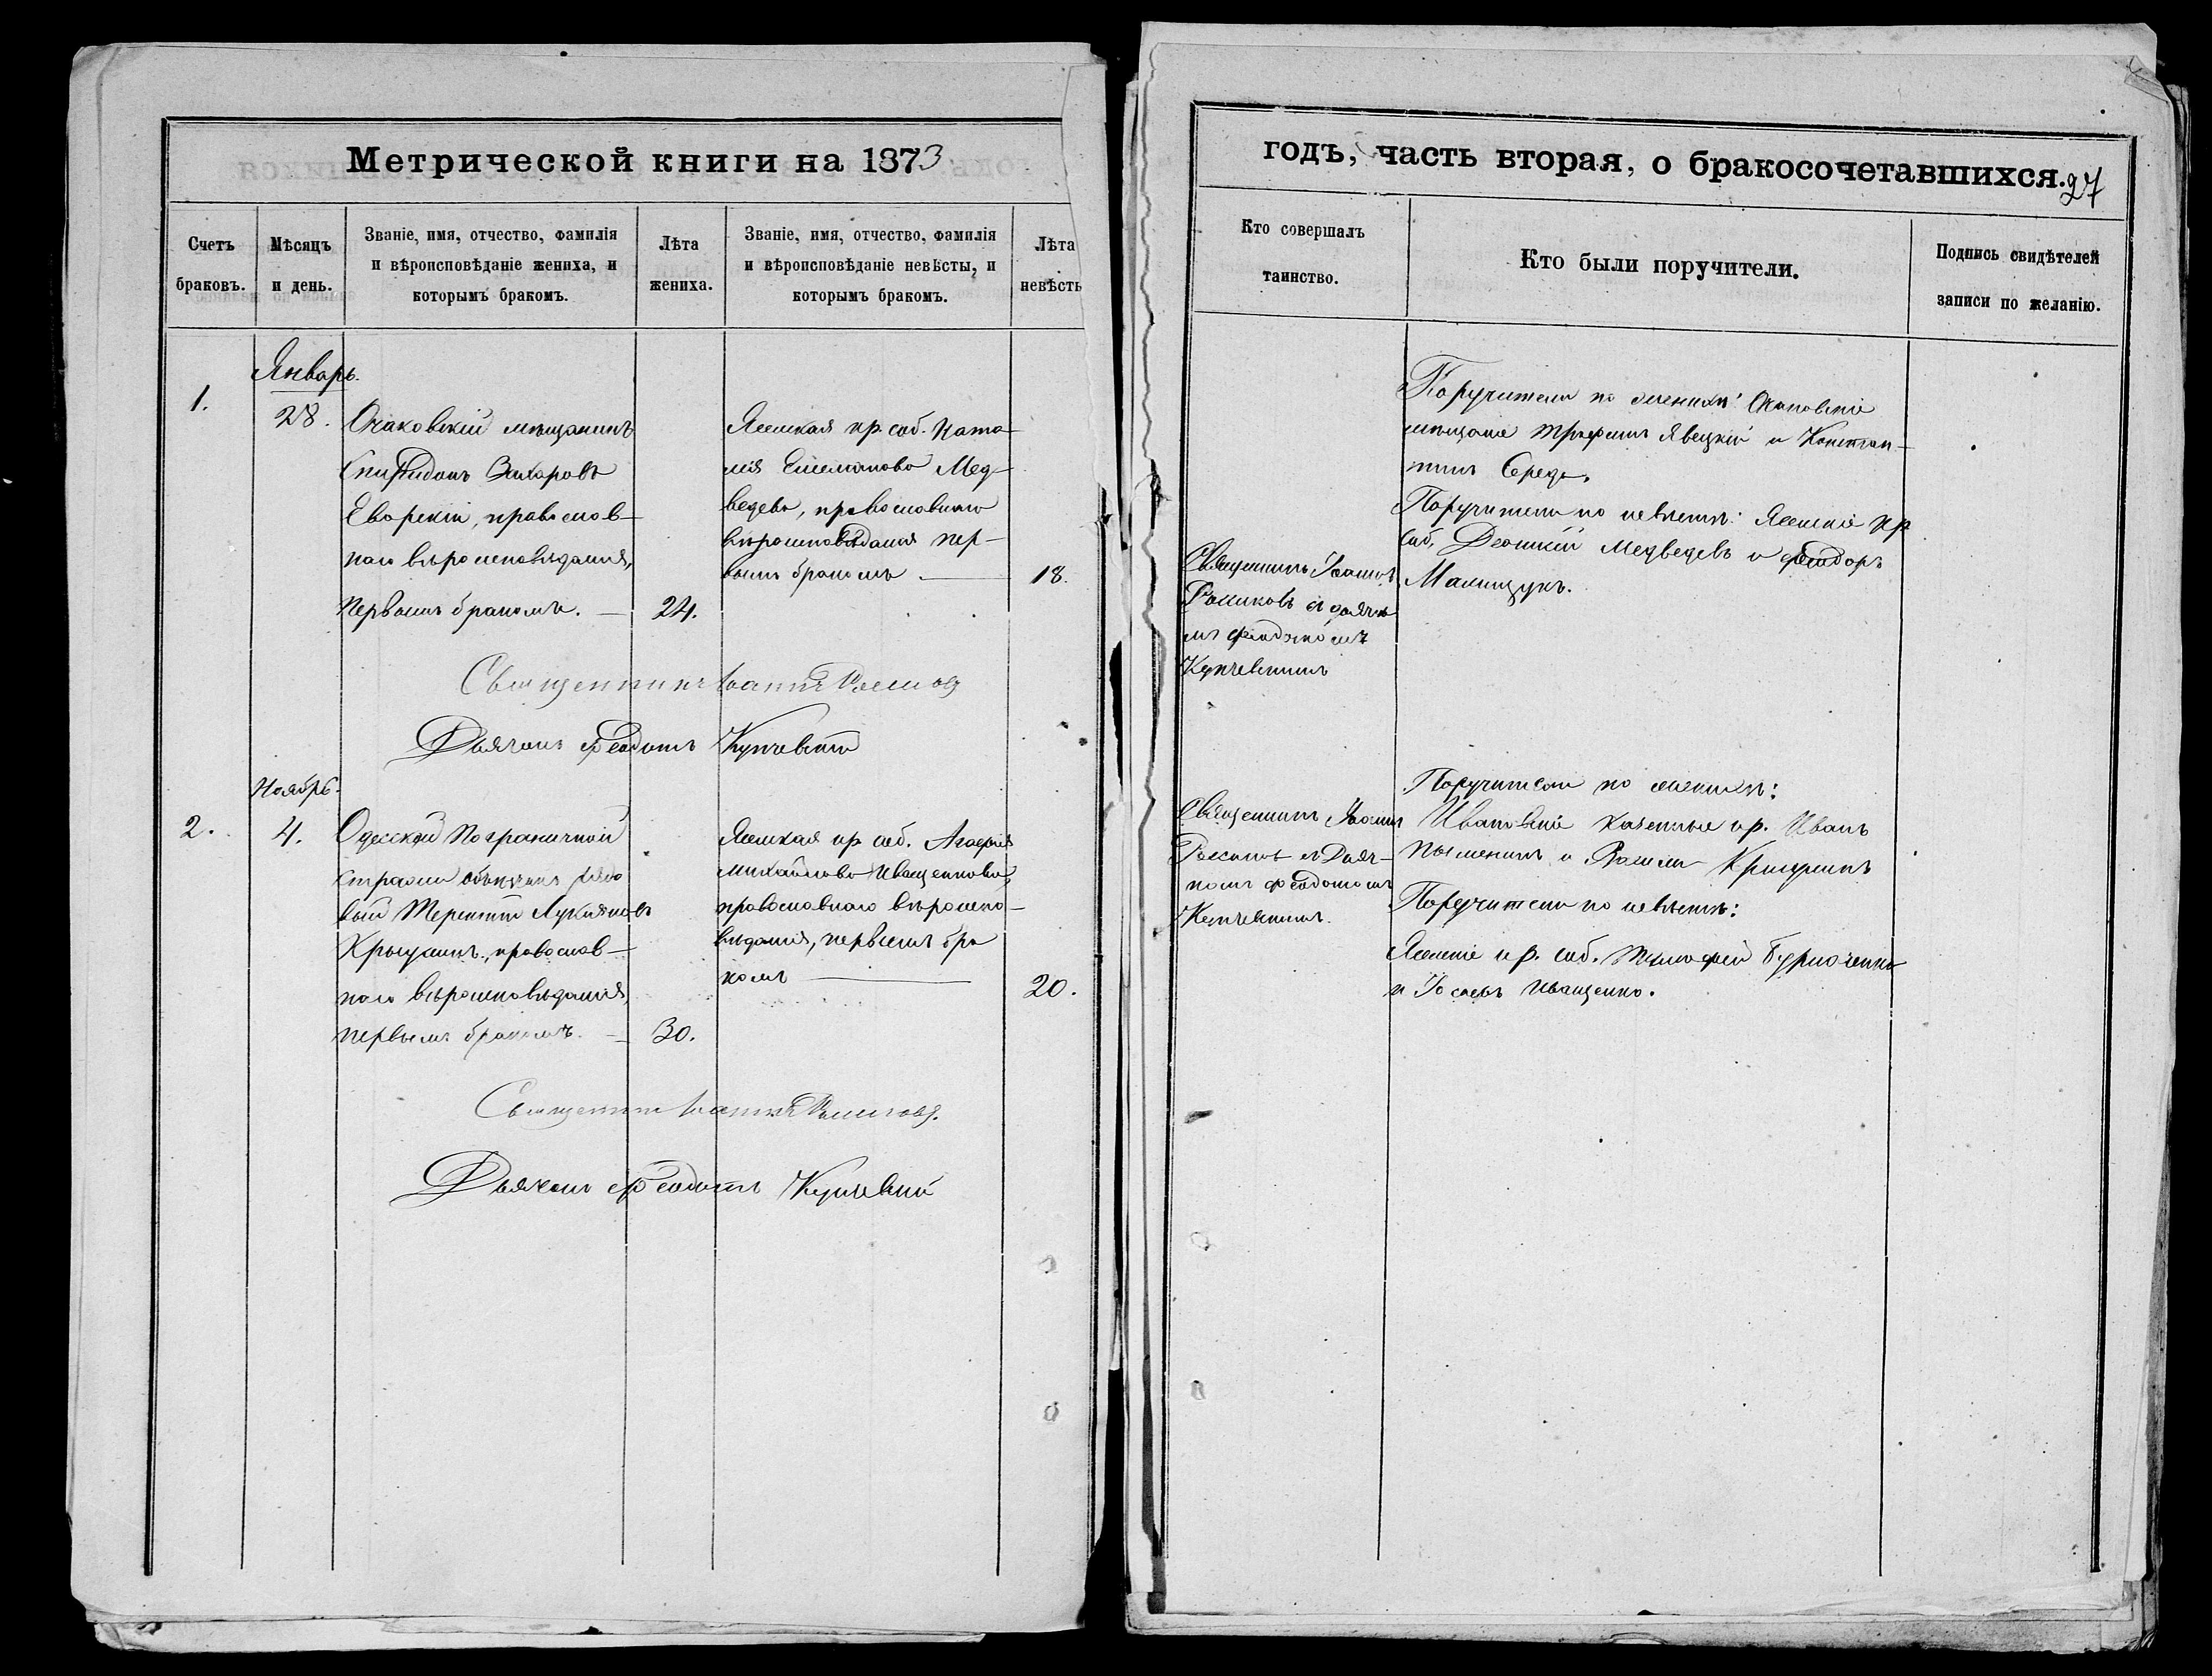 Метрической книги на 1873
годъ, часть вторая, о бракосочетавшихся.
27
Счетъ браковъ.
Мѣсяцъ и день.
Званіе, имя, отчество, фамилія
и вѣроисповѣданіе жениха, и
которымъ бракомъ.
Лѣта жениха.
Званіе, имя, отчество, фамилія
и вѣроисповѣданіе невѣсты, и
которымъ бракомъ.
Лѣта невѣсты
Кто совершалъ
таинство.
Кто были поручители.
Подпись свидѣтелей
записи по желанію.
Январь.
1.
28.
Очаковскій мѣщанинъ
Спиридонъ Захаровъ
православ-
наго вѣроисповѣданія,
первымъ бракомъ. —
24.
пр. соб. Ната-
лія Емельянова Мед-
ведева, православнаго
вѣроисповѣданія пер-
вымъ бракомъ —
18.
Священникъ Іоаннъ
съ дьячко-
мъ Феодотомъ
Купчевскимъ
Поручители по женихѣ: Очаковскіе
мѣщане Трофимъ Явецкій и Констан-
тинъ Середа.
Поручители по невѣстѣ: пр.
соб. Медведевъ и Феодоръ
Священникъ Іоаннъ
Дьячекъ Феодотъ Купчевскій
Ноябрь.
2.
4.
Одесской Пограничной
стражи рядо
вый Терентій Лукіяновъ
православ-
наго вѣроисповѣданія,
первымъ бракомъ. —
30.
пр. соб. Агафія
Михайлова Иващенкова,
православнаго вѣроиспо-
вѣданія, первымъ бра
комъ —
20.
Священникъ Іоаннъ
съ Дьяч-
комъ Феодотомъ
Купчевскимъ.
Поручители по женихѣ:
Ивановскіе казенные кр. Иванъ
и
Поручители по невѣстѣ:
пр. соб. Тимофей
и Іосифъ Иващенко.
Священникъ Іоаннъ
Дьячекъ Феодотъ Купчевскій